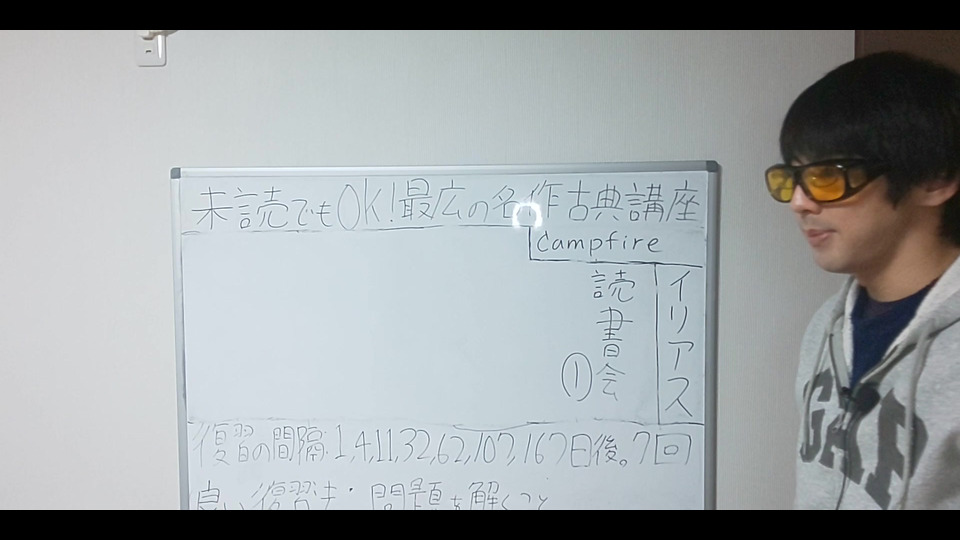 未読でもOK!最広の名作古典講座
Campfire
イリアス
読書会
①
復習の間隔:1,4,11,32,62,107,167日後。7回
良い復習法:問題を解くこと
GAP